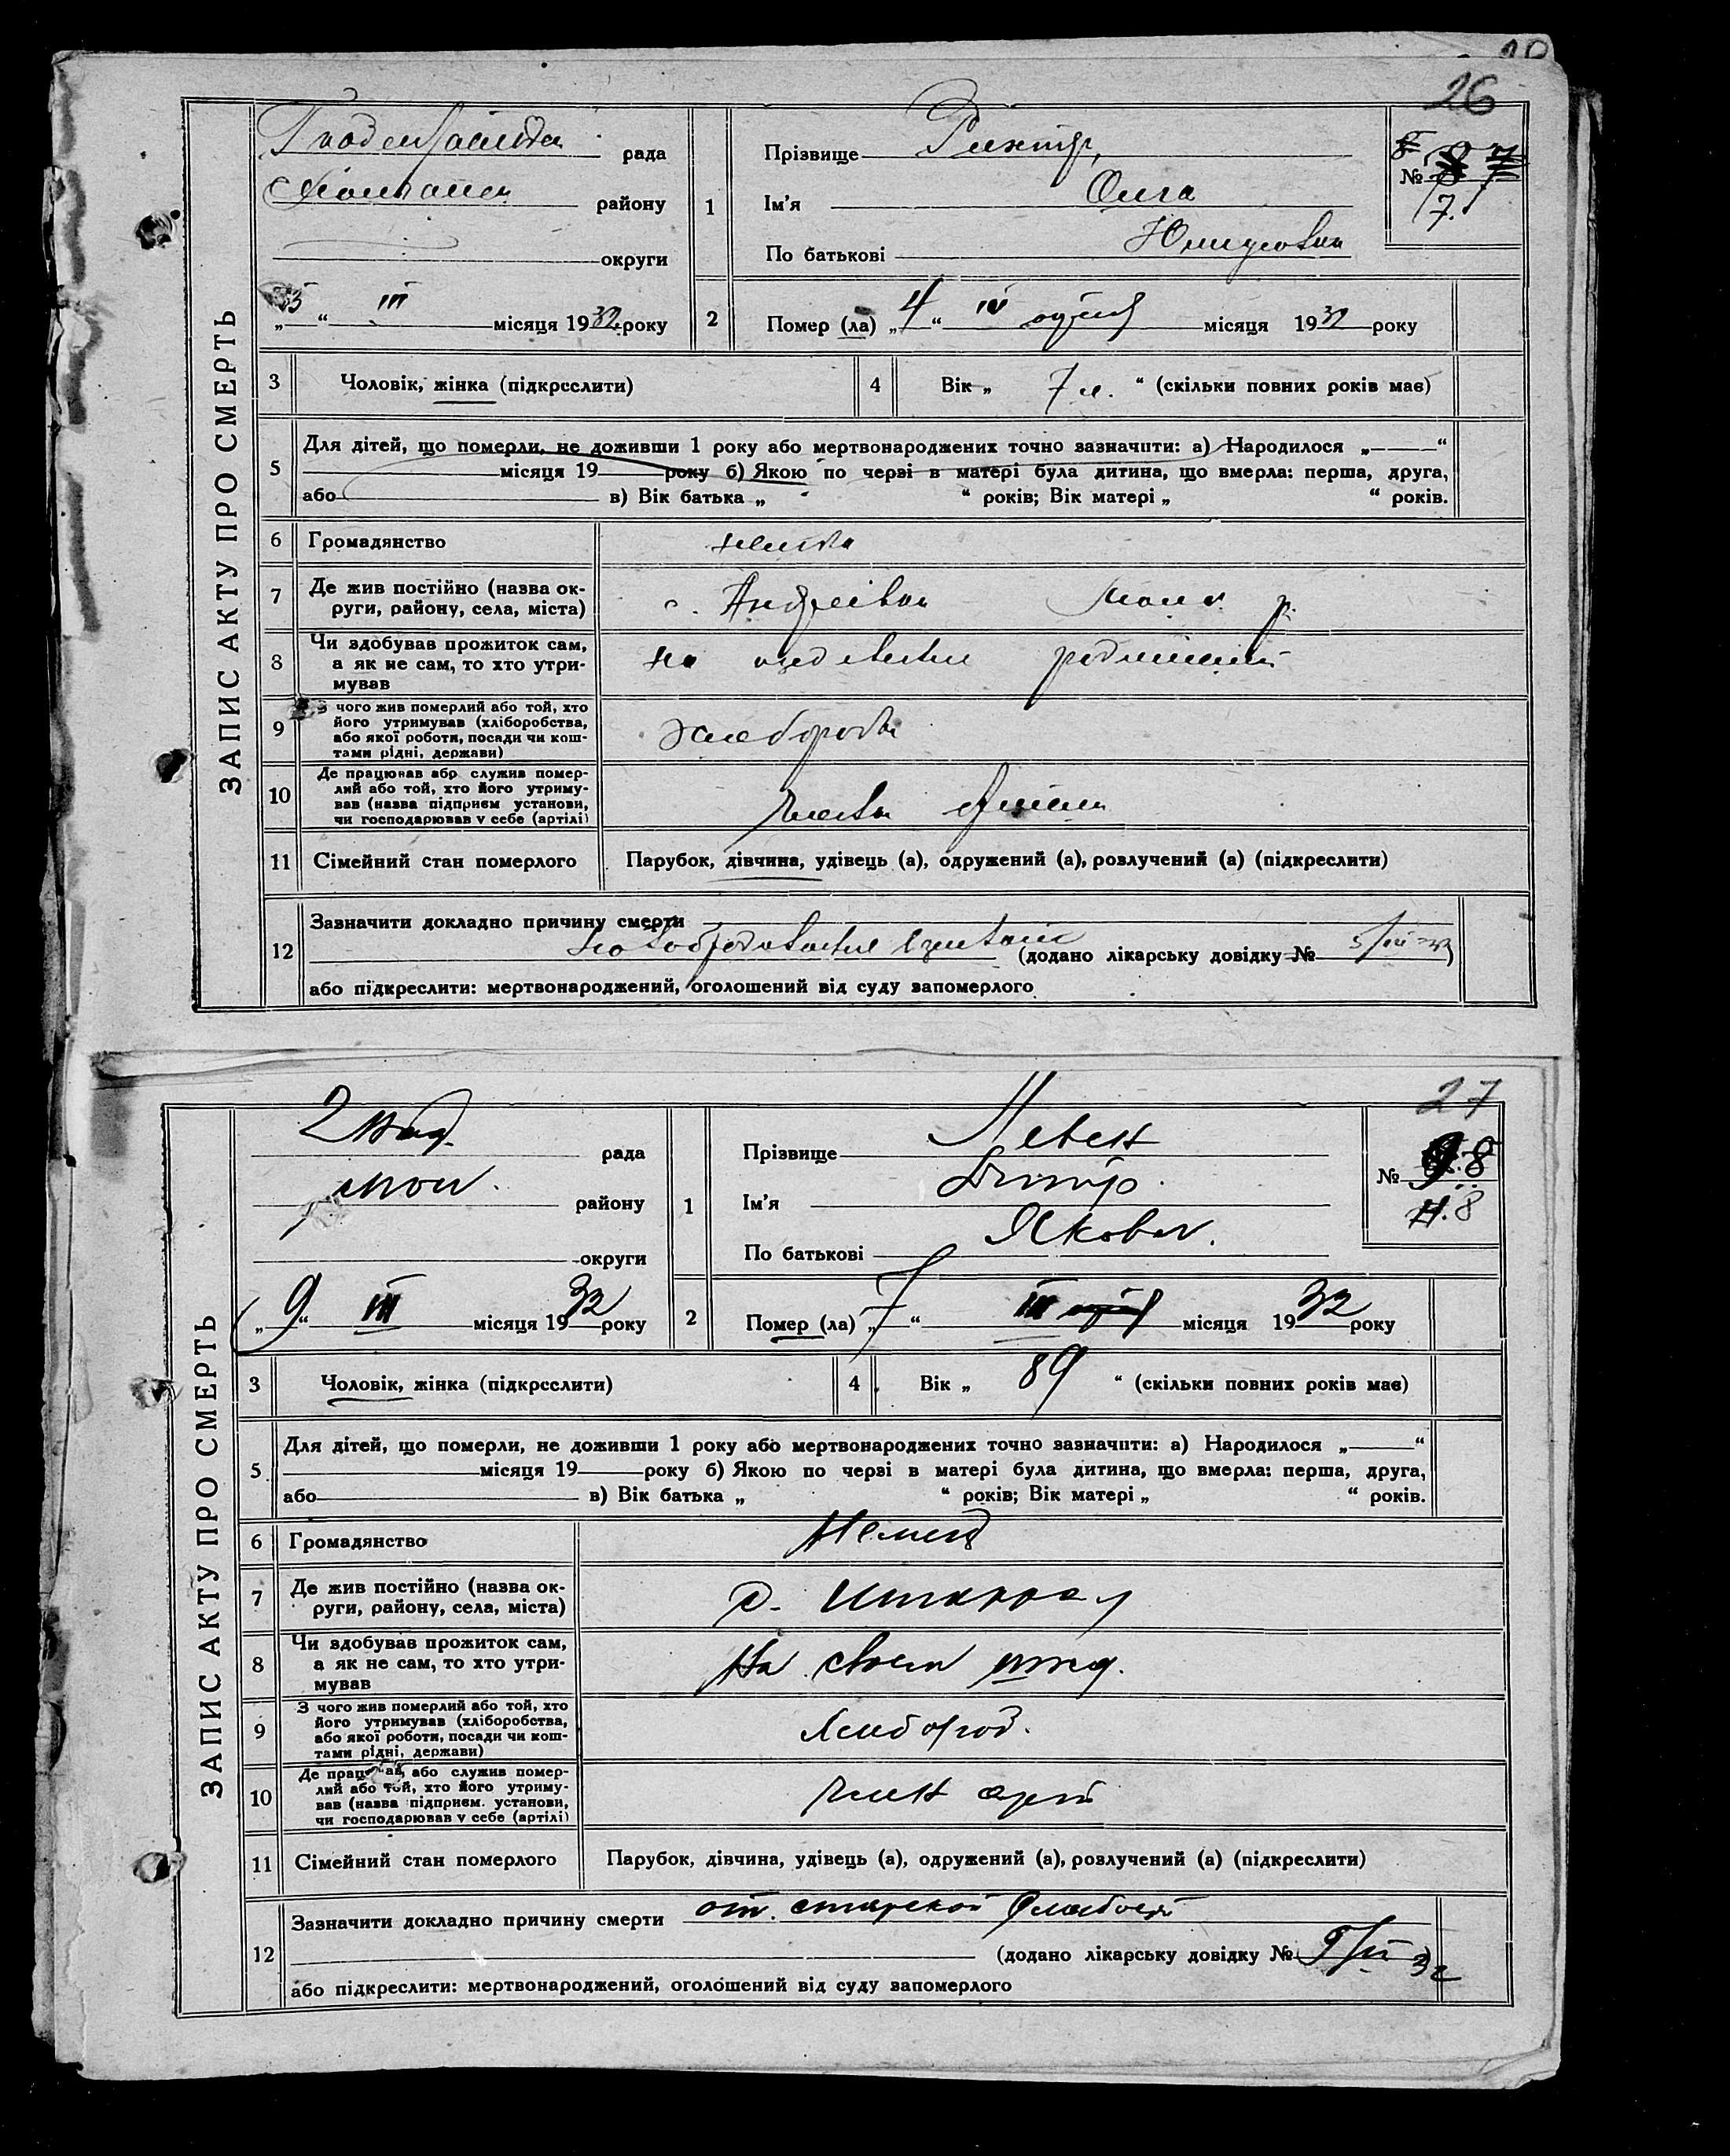 26
ЗАПИС АКТУ ПРО СМЕРТЬ
рада
району
округи
„ “ III місяця 1932 року
1
Прізвище Рихтер,
Ім'я Олга
По батькові
№
7.
2
Помер (ла) „4“ місяця 1932 року
3
Чоловік, жінка (підкреслити)
4
Вік „ 7 л. “ (скільки повних років має)
5
Для дітей, що померли, не доживши 1 року або мертвонароджених точно зазначити: а) Народилося „ “
місяця 19 року б) Якою по черзі в матері була дитина, що вмерла: перша, друга,
або в) Вік батька „ “ років; Вік матері „ “ років.
6
Громадянство немка
7
Де жив постійно (назва ок-
руги, району, села, міста)
с. Андреівка р.
8
Чи здобував прожиток сам,
а як не сам, то хто утри-
мував
на родителей
9
З чого жив померлий або той, хто
його утримував (хліборобства,
або якої роботи, посади чи кош-
тами рідні, держави)
10
Де працював або служив помер-
лий або той, хто його утриму-
вав (назва підприєм установи,
чи господарював у себе (артілі)
11
Сімейний стан померлого
Парубок, дівчина, удівець (а), одружений (а), розлучений (а) (підкреслити)
12
Зазначити докладно причину смерти
(додано лікарську довідку №
або підкреслити: мертвонароджений, оголошений від суду запомерлого
27
ЗАПИС АКТУ ПРО СМЕРТЬ
рада
мол. району
округи
„9“ III місяця 1932 року
1
Прізвище Левен
Ім'я
По батькові Яковл.
№ 8
8
2
Помер (ла) „7“ III місяця 1932 року
3
Чоловік, жінка (підкреслити)
4
Вік „ 89 “ (скільки повних років має)
5
Для дітей, що померли, не доживши 1 року або мертвонароджених точно зазначити: а) Народилося „ “
місяця 19 року б) Якою по черзі в матері була дитина, що вмерла: перша, друга,
або в) Вік батька „ “ років; Вік матері „ “ років.
6
Громадянство Немец
7
Де жив постійно (назва ок-
руги, району, села, міста)
8
Чи здобував прожиток сам,
а як не сам, то хто утри-
мував
На своем ижд.
9
З чого жив померлий або той, хто
його утримував (хліборобства,
або якої роботи, посади чи кош-
тами рідні, держави)
Хлебороб.
10
Де працював, або служив помер-
лий або той, хто його утриму-
вав (назва підприєм. установи,
чи господарював у себе (артілі)
член арт
11
Сімейний стан померлого
Парубок, дівчина, удівець (а), одружений (а), розлучений (а) (підкреслити)
12
Зазначити докладно причину смерти от старческой слабости
(додано лікарську довідку №
або підкреслити: мертвонароджений, оголошений від суду запомерлого